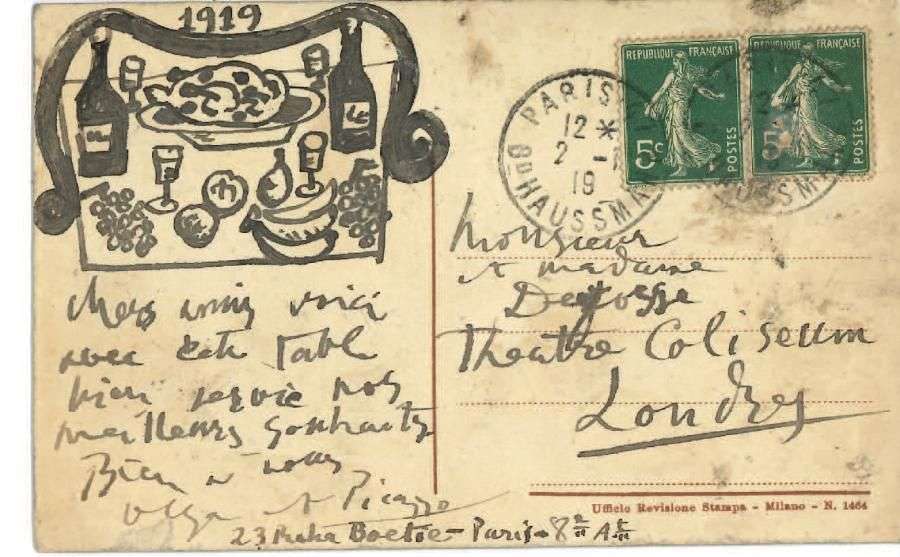 1919
chers amis voici
avec cette table
bien servie nos
meilleurs souhaits
Bien a vous
Olga et Picasso
23 Rue La Boetie - Paris - 8
REPUBLIQUE FRANÇAISE
5c
POSTES
REPUBLIQUE FRANÇAISE
POSTES
PARIS
12 *
2 -
19
BD HAUSSMA
Monsieur
et madame
Theatre Coliseum
Londres
Ufficio Revisione Stampa - Milano - N. 1464